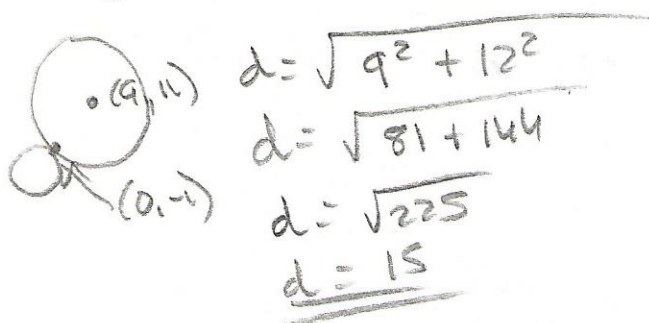 (9,11)
(0,-1)
d = √9² + 12²
d = √81 + 144
d = √225
d = 15